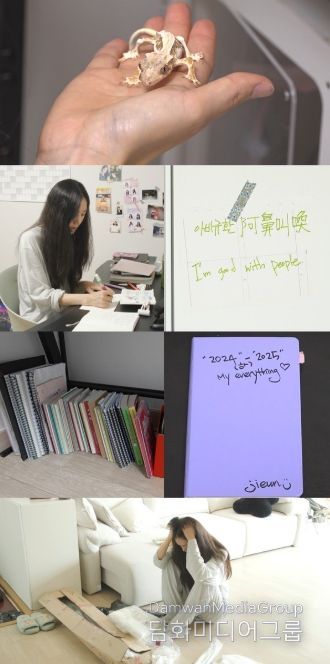 아비규환 阿鼻叫喚
I'm good with people
"2024" ~ "2025"
My everything♡
jieun
DamwanMediaGroup
담화미디어그룹